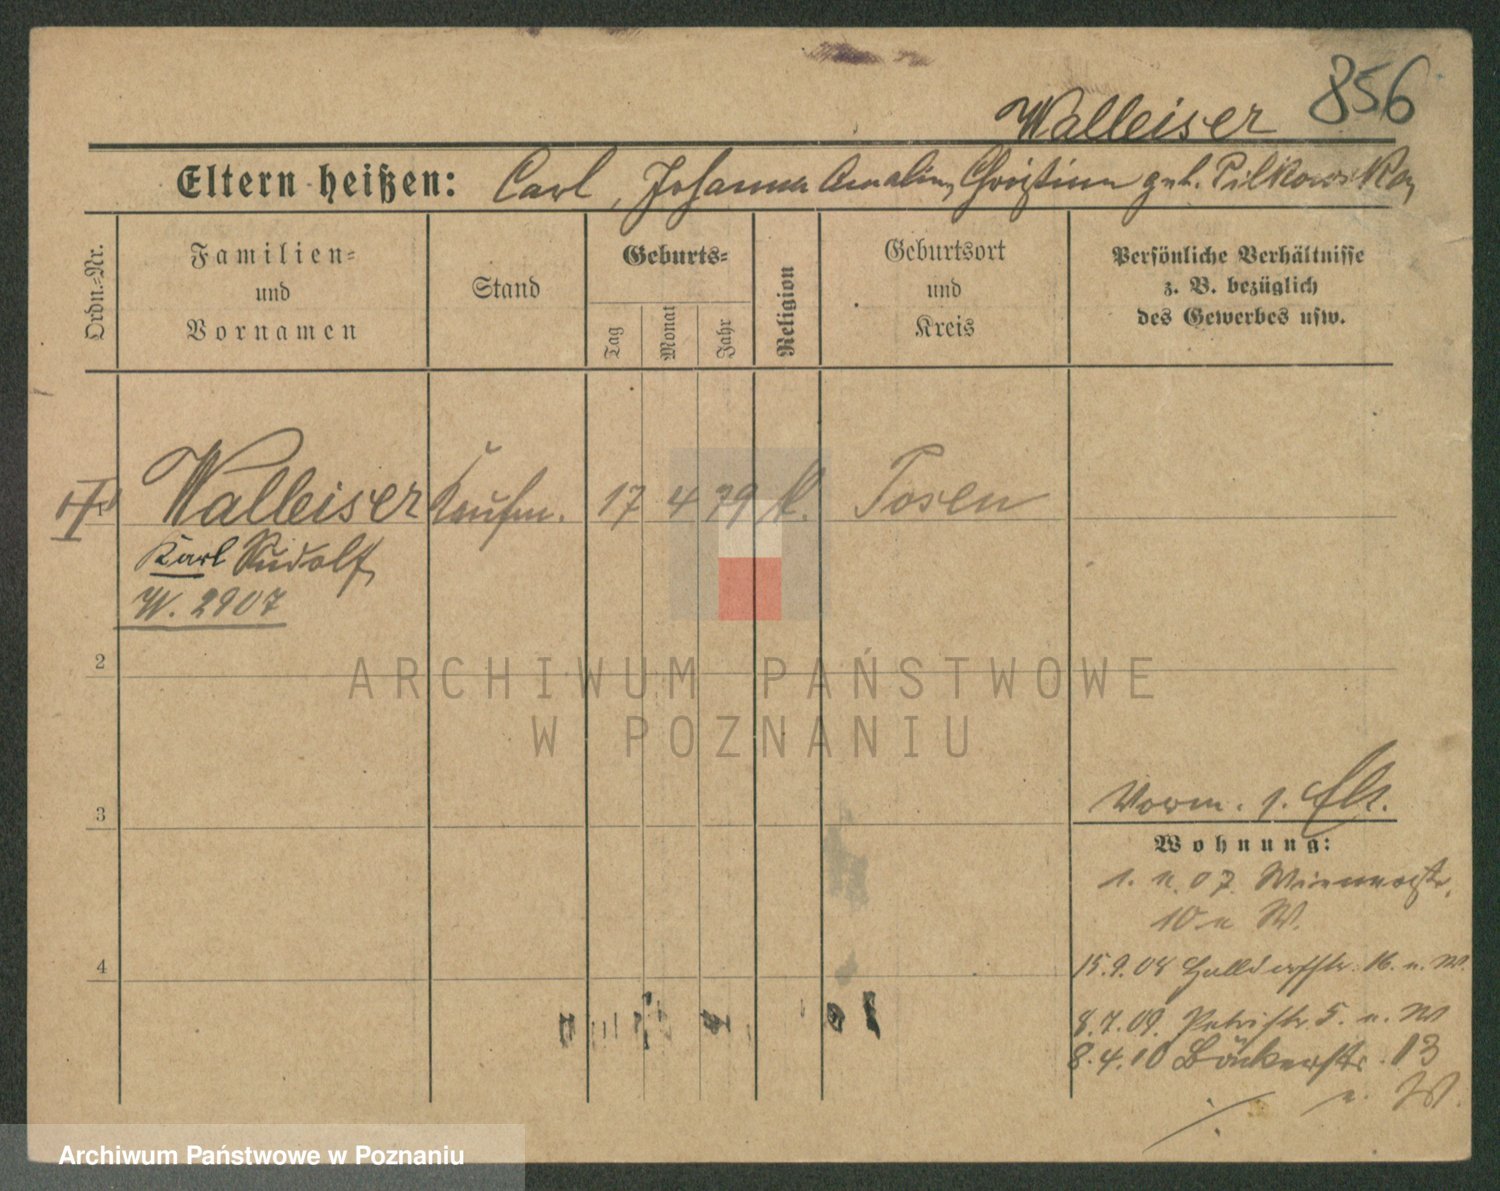 856
Walleiser
Eltern heißen: Carl, Johanna Amalie, Christine geb. Pilkowska,
Ordn.-Nr.
Familien-
und
Vornamen
Stand
Geburts-
Tag
Monat
Jahr
Religion
Geburtsort
und
Kreis
Persönliche Verhältnisse
z. B. bezüglich
des Gewerbes usw.
Walleiser Kaufm. 17 4 79 k. Posen
Karl Rudolf
W. 2907
2
ARCHIWUM PAŃSTWOWE
W POZNANIU
3
Vorm.
Wohnung:
07
10 W.
4
15.9.08 16. W.
8.7.09. Petristr. 5. W
8.4.10 Bäckerstr. 13
W.
Archiwum Państwowe w Poznaniu